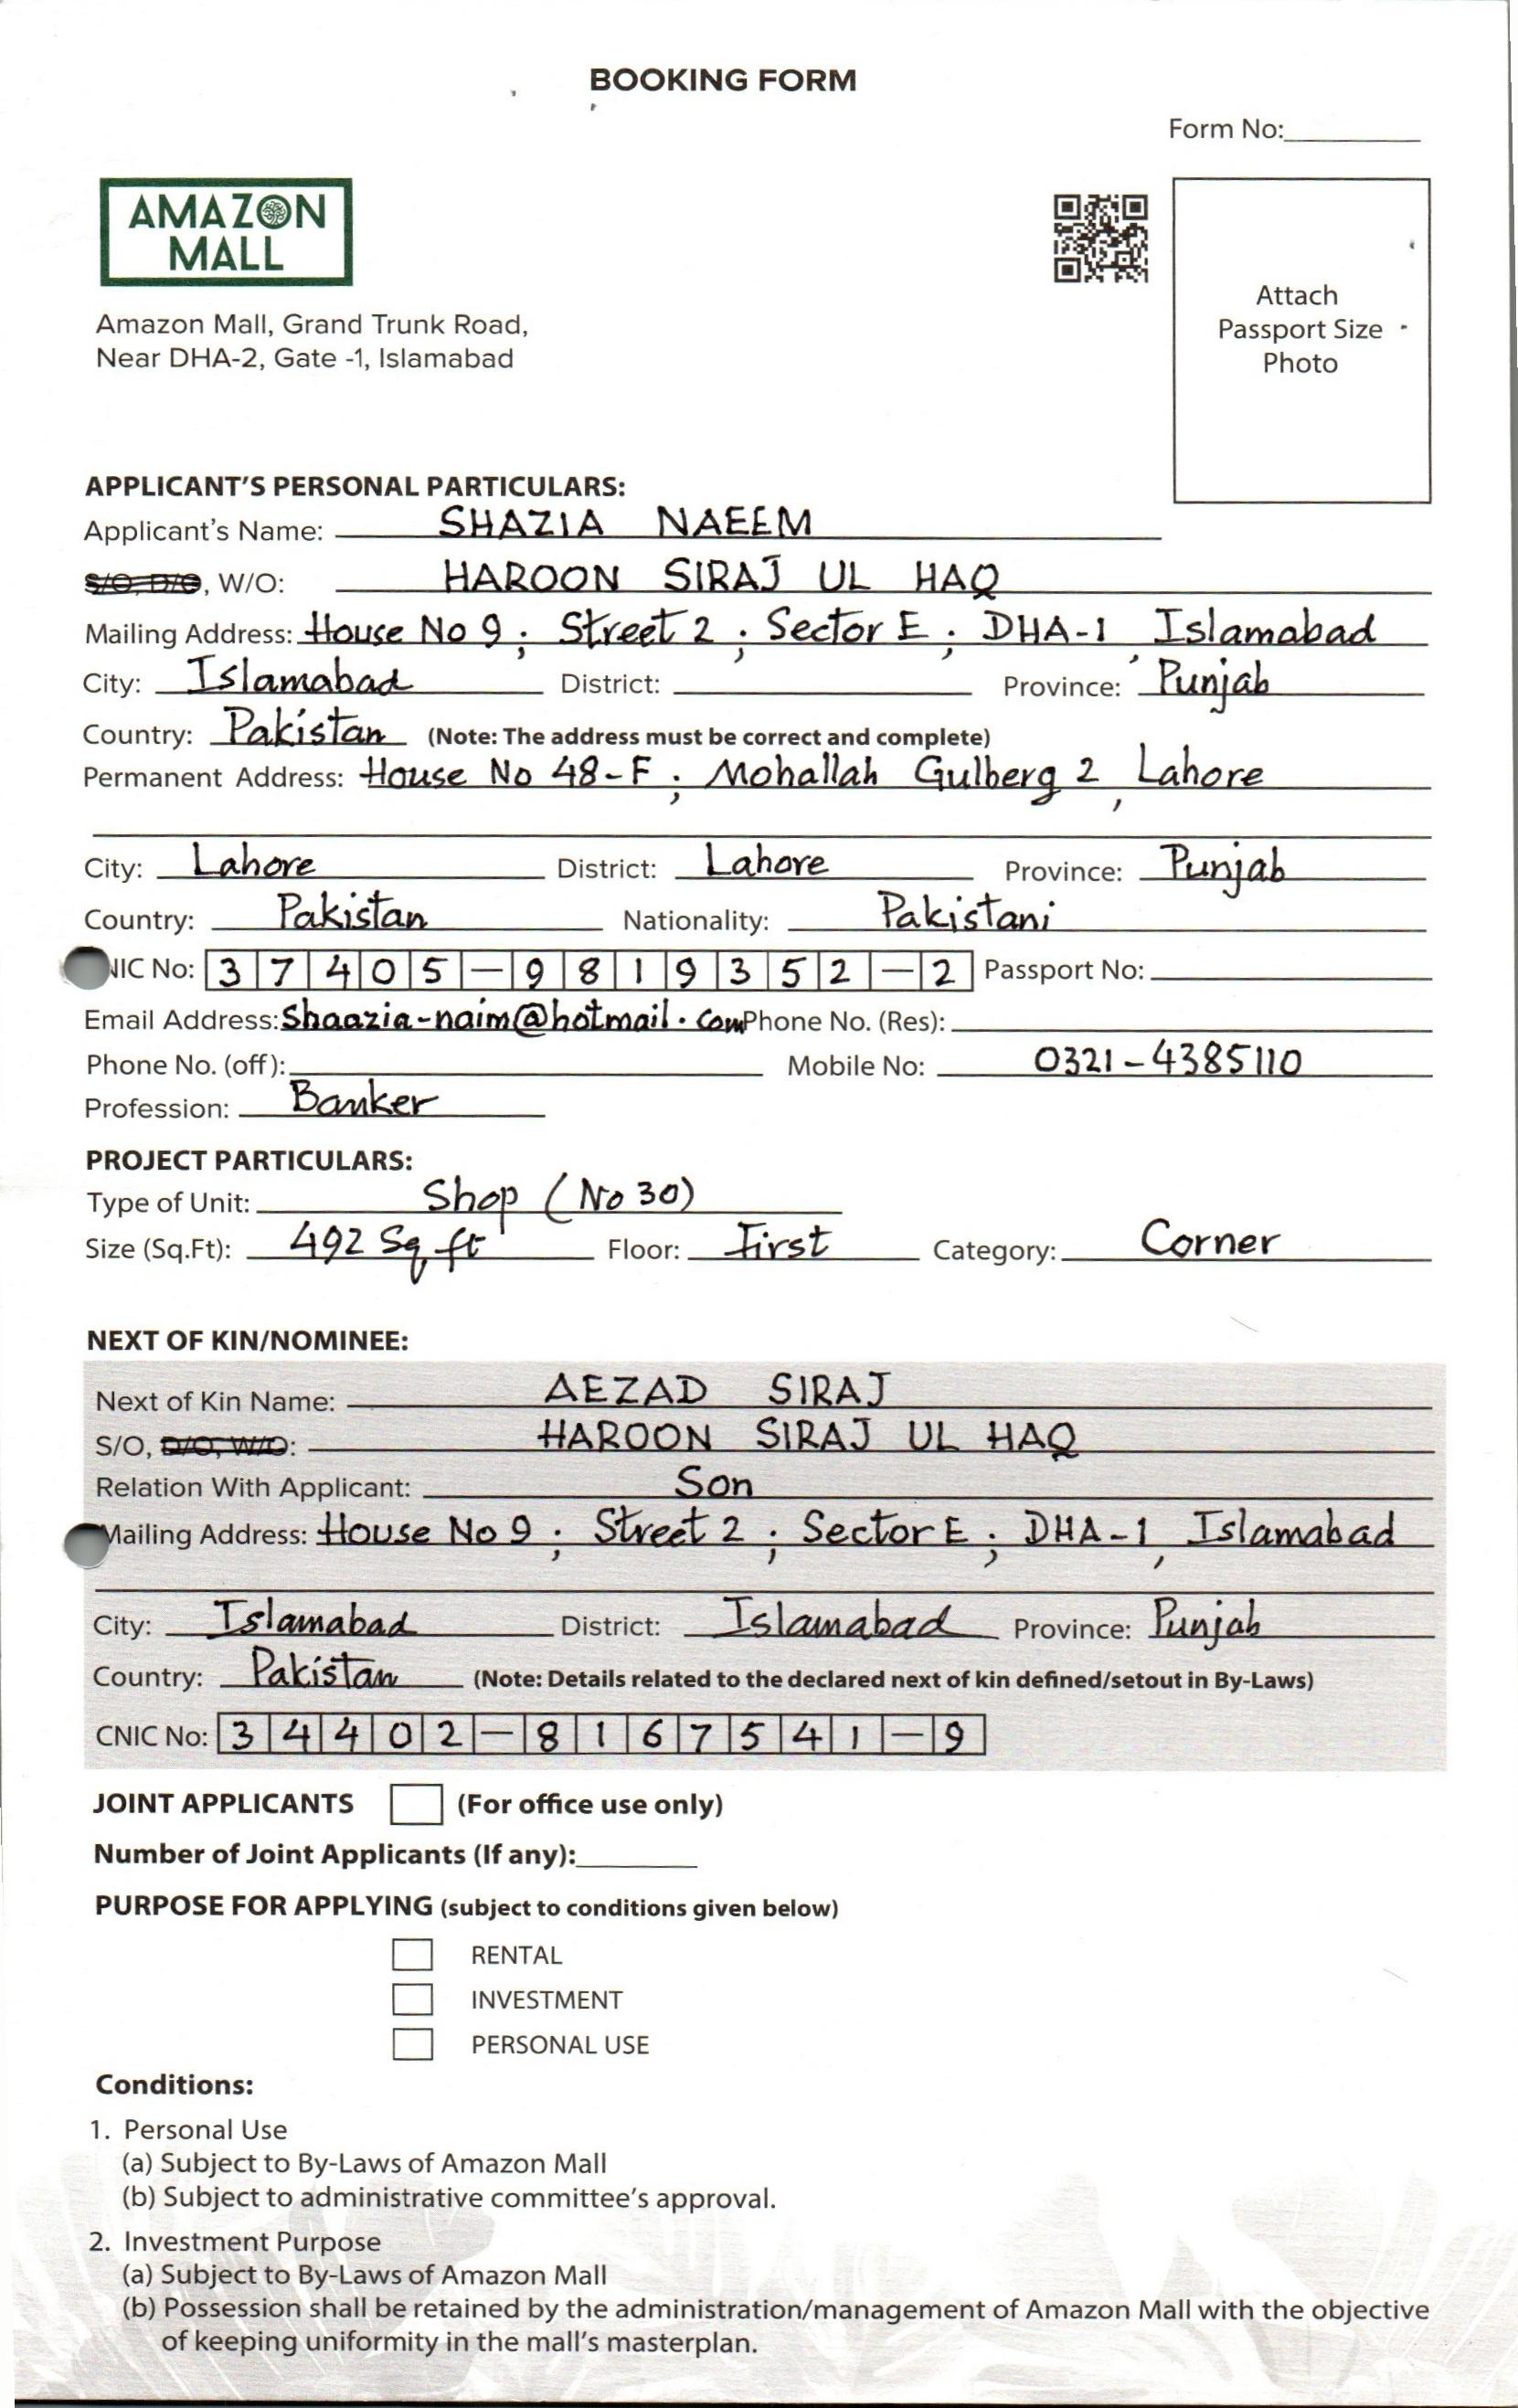 BOOKING FORM
Form No:
AMAZON
MALL
Amazon Mall, Grand Trunk Road,
Near DHA-2, Gate -1, Islamabad
Attach
Passport Size
Photo
APPLICANT'S PERSONAL PARTICULARS:
Applicant's Name: SHAZIA NAEEM
S/O, D/O, W/O: HAROON SIRAJ UL HAQ
Mailing Address: House No 9 ; Street 2 ; Sector E ; DHA-1, Islamabad
City: Islamabad District: Province: Punjab
Country: Pakistan (Note: The address must be correct and complete)
Permanent Address: House No 48-F ; Mohallah Gulberg 2, Lahore
City: Lahore District: Lahore Province: Punjab
Country: Pakistan Nationality: Pakistani
NIC No: 37405-9819352-2 Passport No:
Email Address: Shaazia-naim@hotmail.com Phone No. (Res):
Phone No. (off): Mobile No: 0321-4385110
Profession: Banker
PROJECT PARTICULARS:
Type of Unit: Shop (No 30)
Size (Sq.Ft): 492 Sq ft Floor: First Category: Corner
NEXT OF KIN/NOMINEE:
Next of Kin Name: AEZAD SIRAJ
S/O, D/O, W/O: HAROON SIRAJ UL HAQ
Relation With Applicant: Son
Mailing Address: House No 9 ; Street 2 ; Sector E ; DHA-1, Islamabad
City: Islamabad District: Islamabad Province: Punjab
Country: Pakistan (Note: Details related to the declared next of kin defined/setout in By-Laws)
CNIC No: 34402-8167541-9
JOINT APPLICANTS (For office use only)
Number of Joint Applicants (If any):
PURPOSE FOR APPLYING (subject to conditions given below)
RENTAL
INVESTMENT
PERSONAL USE
Conditions:
1. Personal Use
(a) Subject to By-Laws of Amazon Mall
(b) Subject to administrative committee's approval.
2. Investment Purpose
(a) Subject to By-Laws of Amazon Mall
(b) Possession shall be retained by the administration/management of Amazon Mall with the objective
of keeping uniformity in the mall's masterplan.